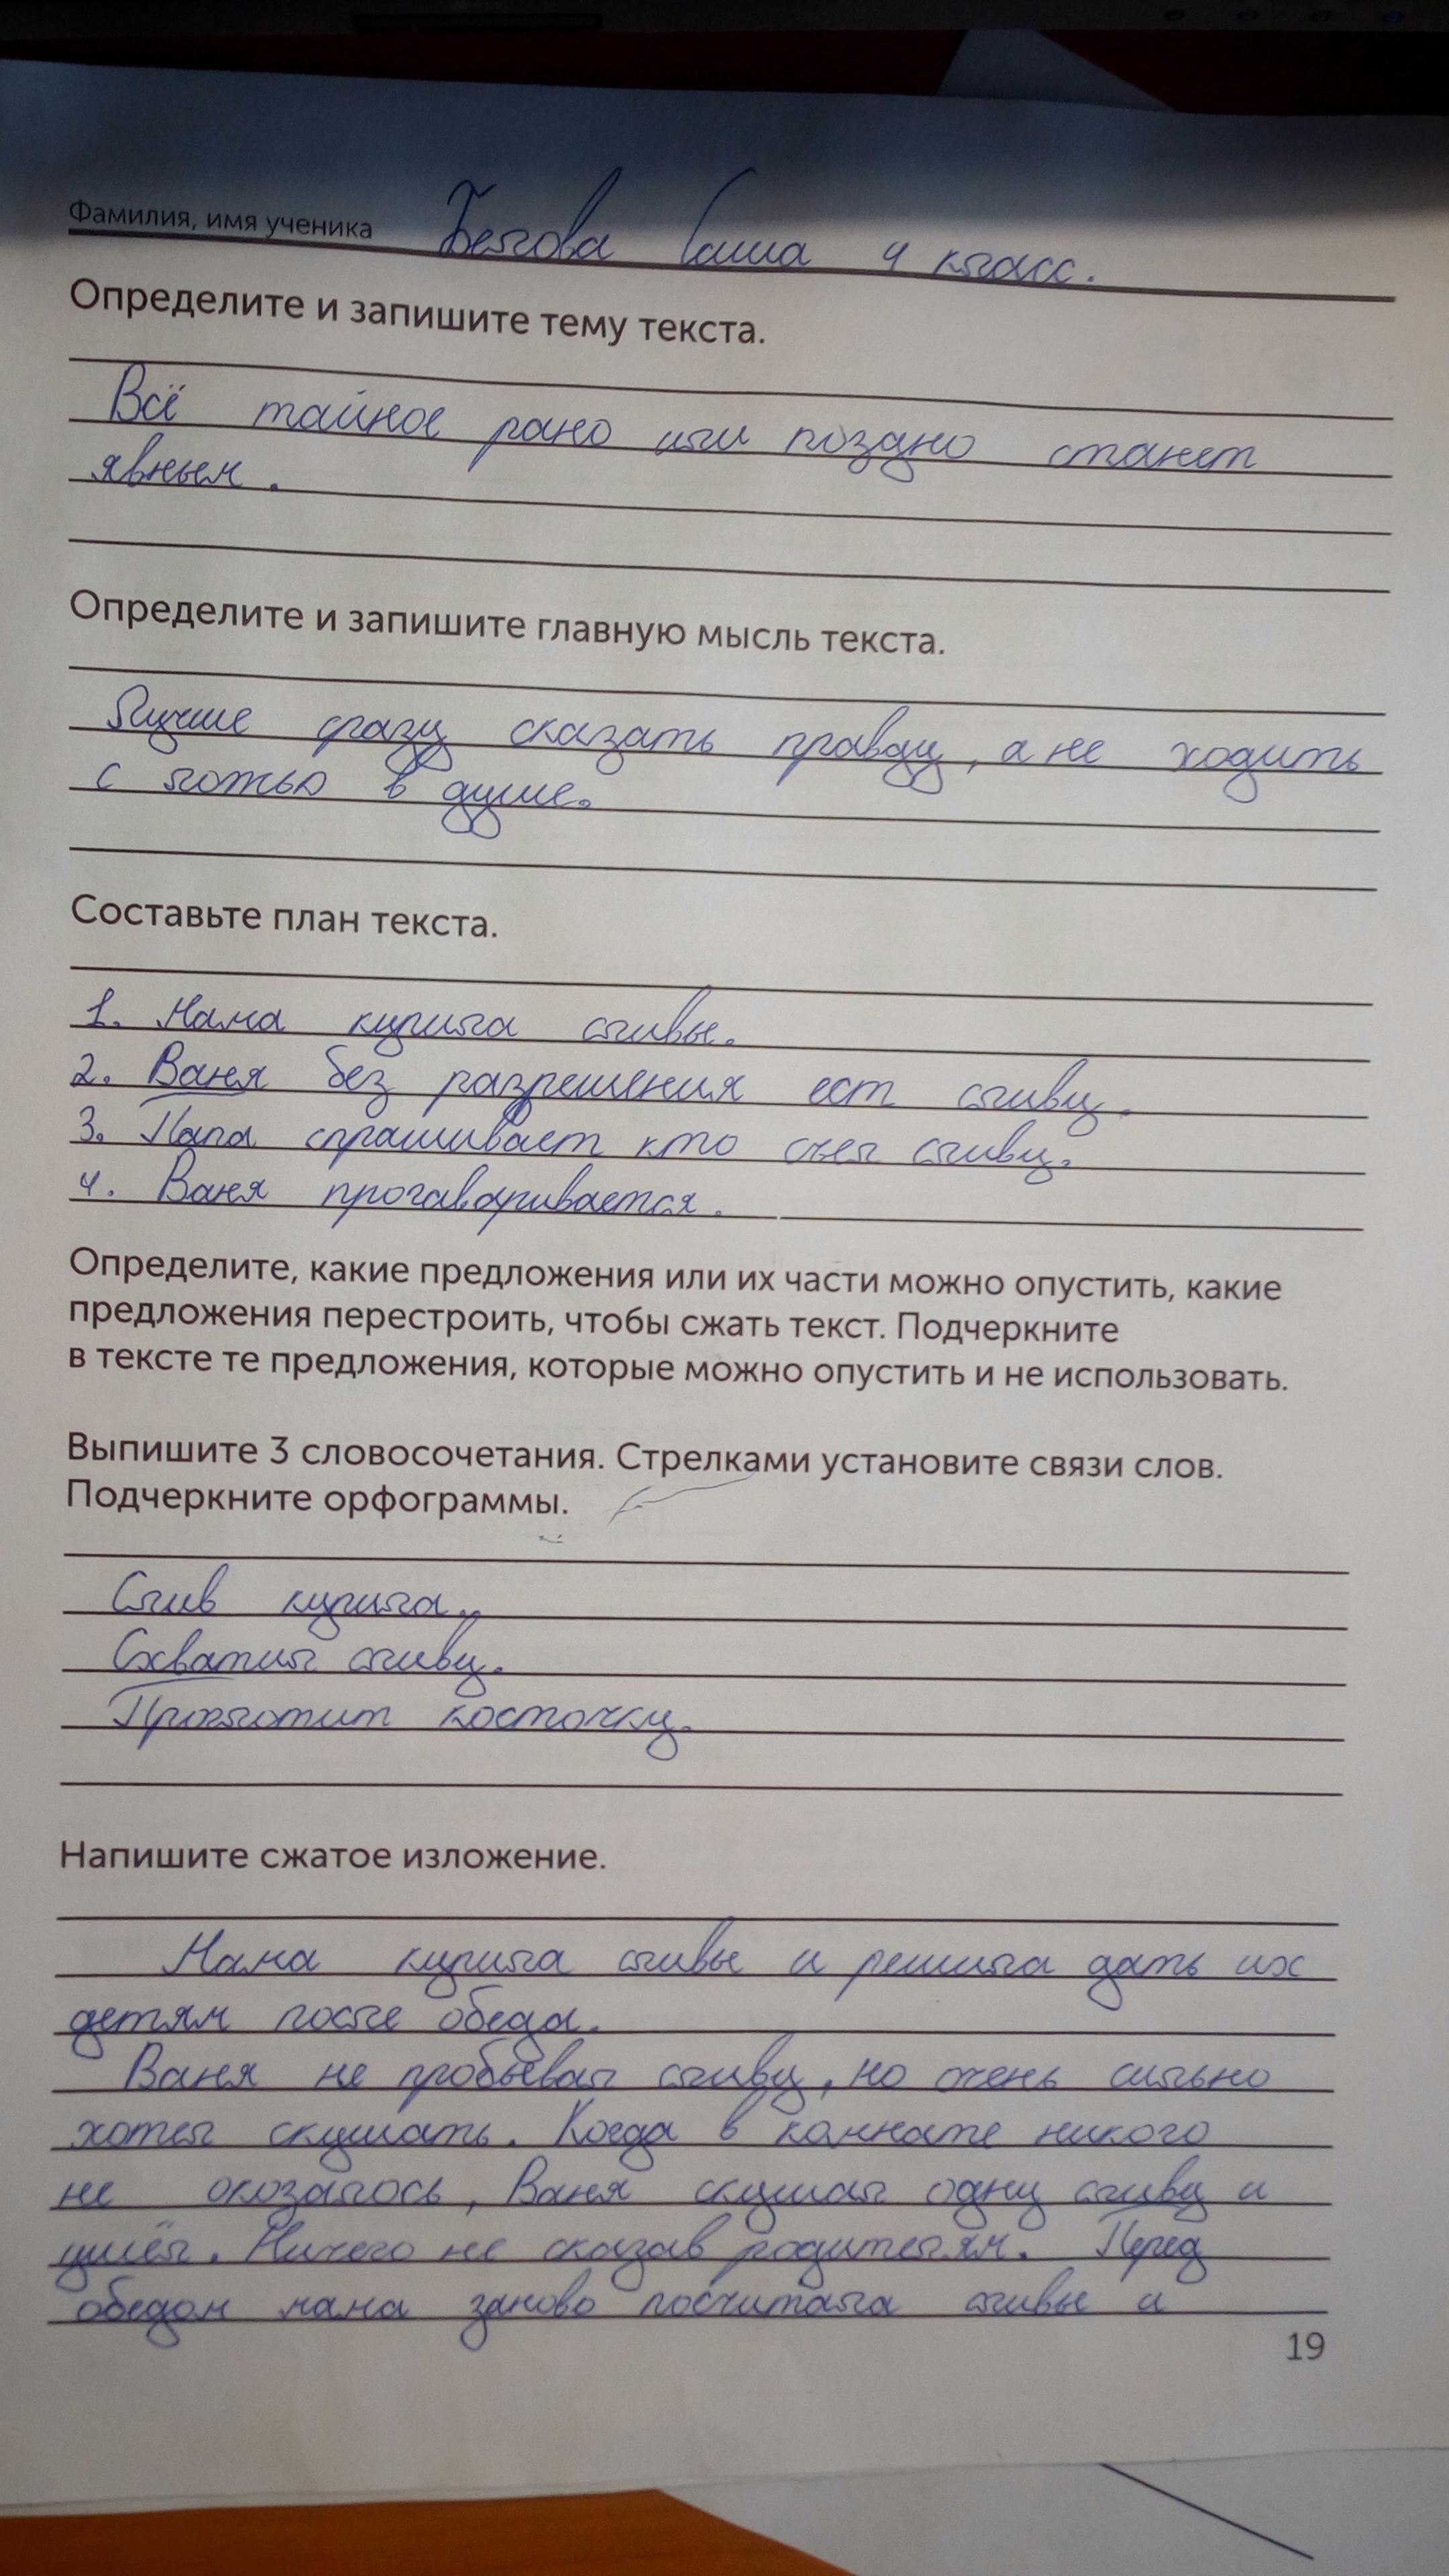 Фамилия, имя ученика Белова Саша 4 класс.
Определите и запишите тему текста.
Всё тайное рано или поздно станет
явным.
Определите и запишите главную мысль текста.
Лучше сразу сказать правду, а не ходить
с ложью в душе.
Составьте план текста.
1. Мама купила сливы.
2. Ваня без разрешения ест сливу.
3. Папа спрашивает кто съел сливу.
4. Ваня прогаваривается.
Определите, какие предложения или их части можно опустить, какие
предложения перестроить, чтобы сжать текст. Подчеркните
в тексте те предложения, которые можно опустить и не использовать.
Выпишите 3 словосочетания. Стрелками установите связи слов.
Подчеркните орфограммы.
Слив купила.
Схватил сливу.
Проглотит косточку.
Напишите сжатое изложение.
Мама купила сливы и решила дать их
детям после обеда.
Ваня не пробывал сливу, но очень сильно
хотел скушать. Когда в комнате никого
не окозалось, Ваня скушал одну сливу и
ушёл. Ничего не сказав родителям. Перед
обедом мама заново посчитала сливы и
19